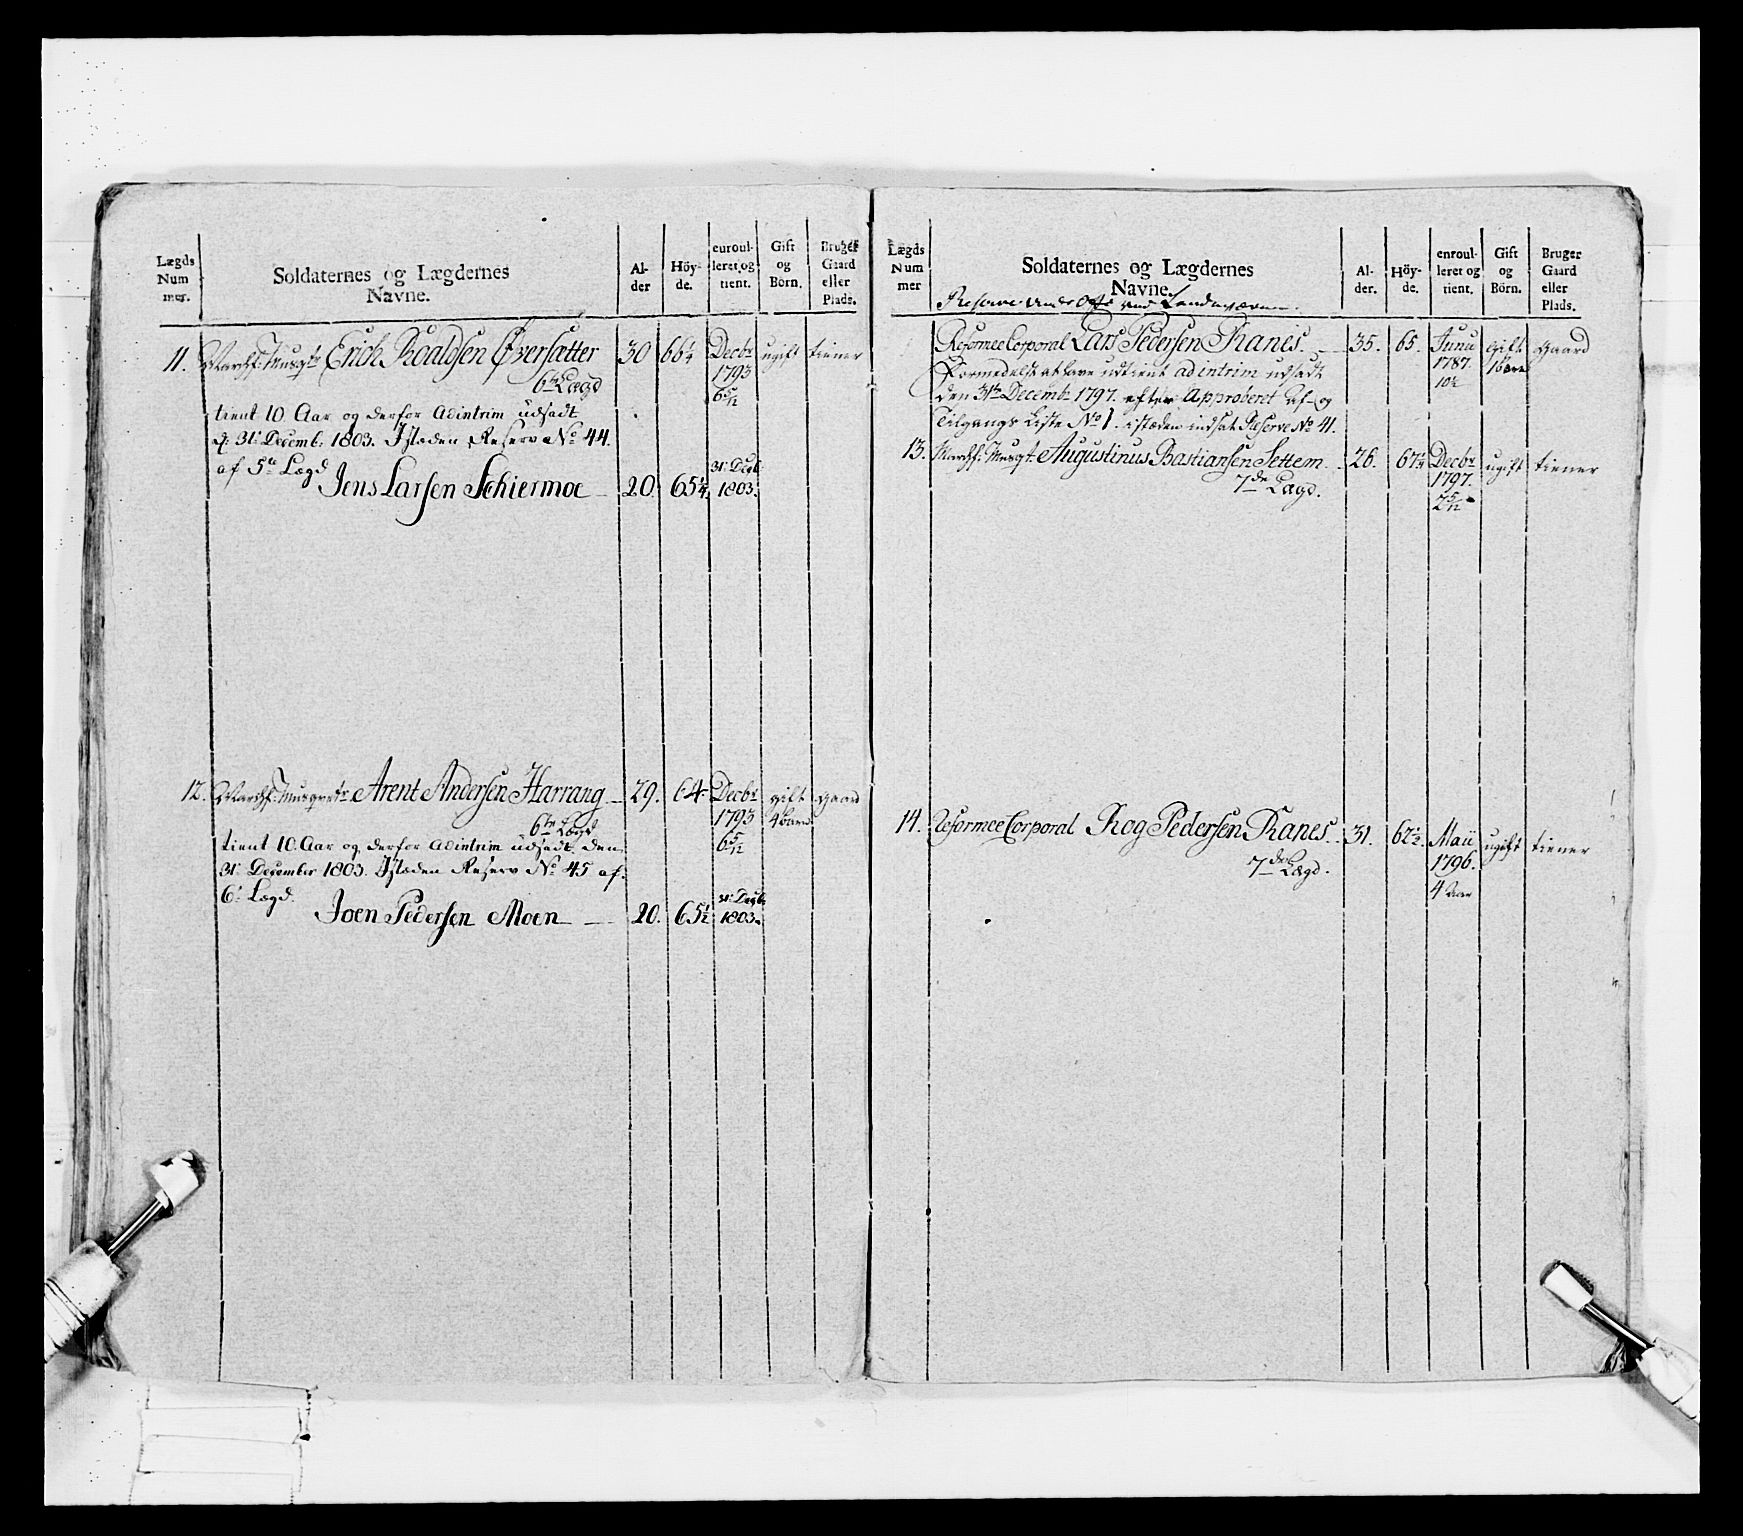 Lægds Num mer.
Soldaternes og Lægdernes Navne.
Al- der
Höy- de.
enroul- leret og tient.
Gift og Börn.
Bruger Gaard eller Plads.
11. Erich Roaldsen Øversætter 30 66¼ Decbr ugift tiener
6te Lægd 1793
6 5/12
tient 10 Aar og derfor ad intrim udsadt
d: 31: Decemb. 1803. Istæden Reserv No 44.
af 5te Lægd 31: Decb:
Jens Larsen Schiermoe 20. 65¼ 1803.
12. Arent Andersen Harrang 29. 64. Decbr gift Gaard
6te Lægd 1793 4 børn
6 5/12
tient 10 Aar og derfor ad intrim udsadt den
31: December 1803. Istæden Reserv No 45 af
6: Lægd. 31: Decb:
Joen Pedersen Moen 20. 65½ 1803.
Lægds Num mer
Soldaternes og Lægdernes Navne.
Al- der.
Höy- de.
enroul- leret og tient.
Gift og Börn.
Bruger Gaard eller Plads.
Reserve Under Landeværnet.
Reformee Corporal Lars Pedersen Ranes. 35. 65. Junii gift Gaard
Formedelst at have udtient ad intrim udsadt 1787. 1 barn
den 31te Decembr 1797. efter Approberet Af- og 10½
Tilgangs Liste No 1. i stæden indsat Reserve No 41.
13. Augustinus Bastiansen Settem 26. 67¼ Decbr ugift tiener
7de Lægd. 1797.
2 5/12
14. Reformee Corporal Rog Pedersen Ranes 31. 67½. Maii ugift tiener
7de Lægd. 1796.
4 Aar